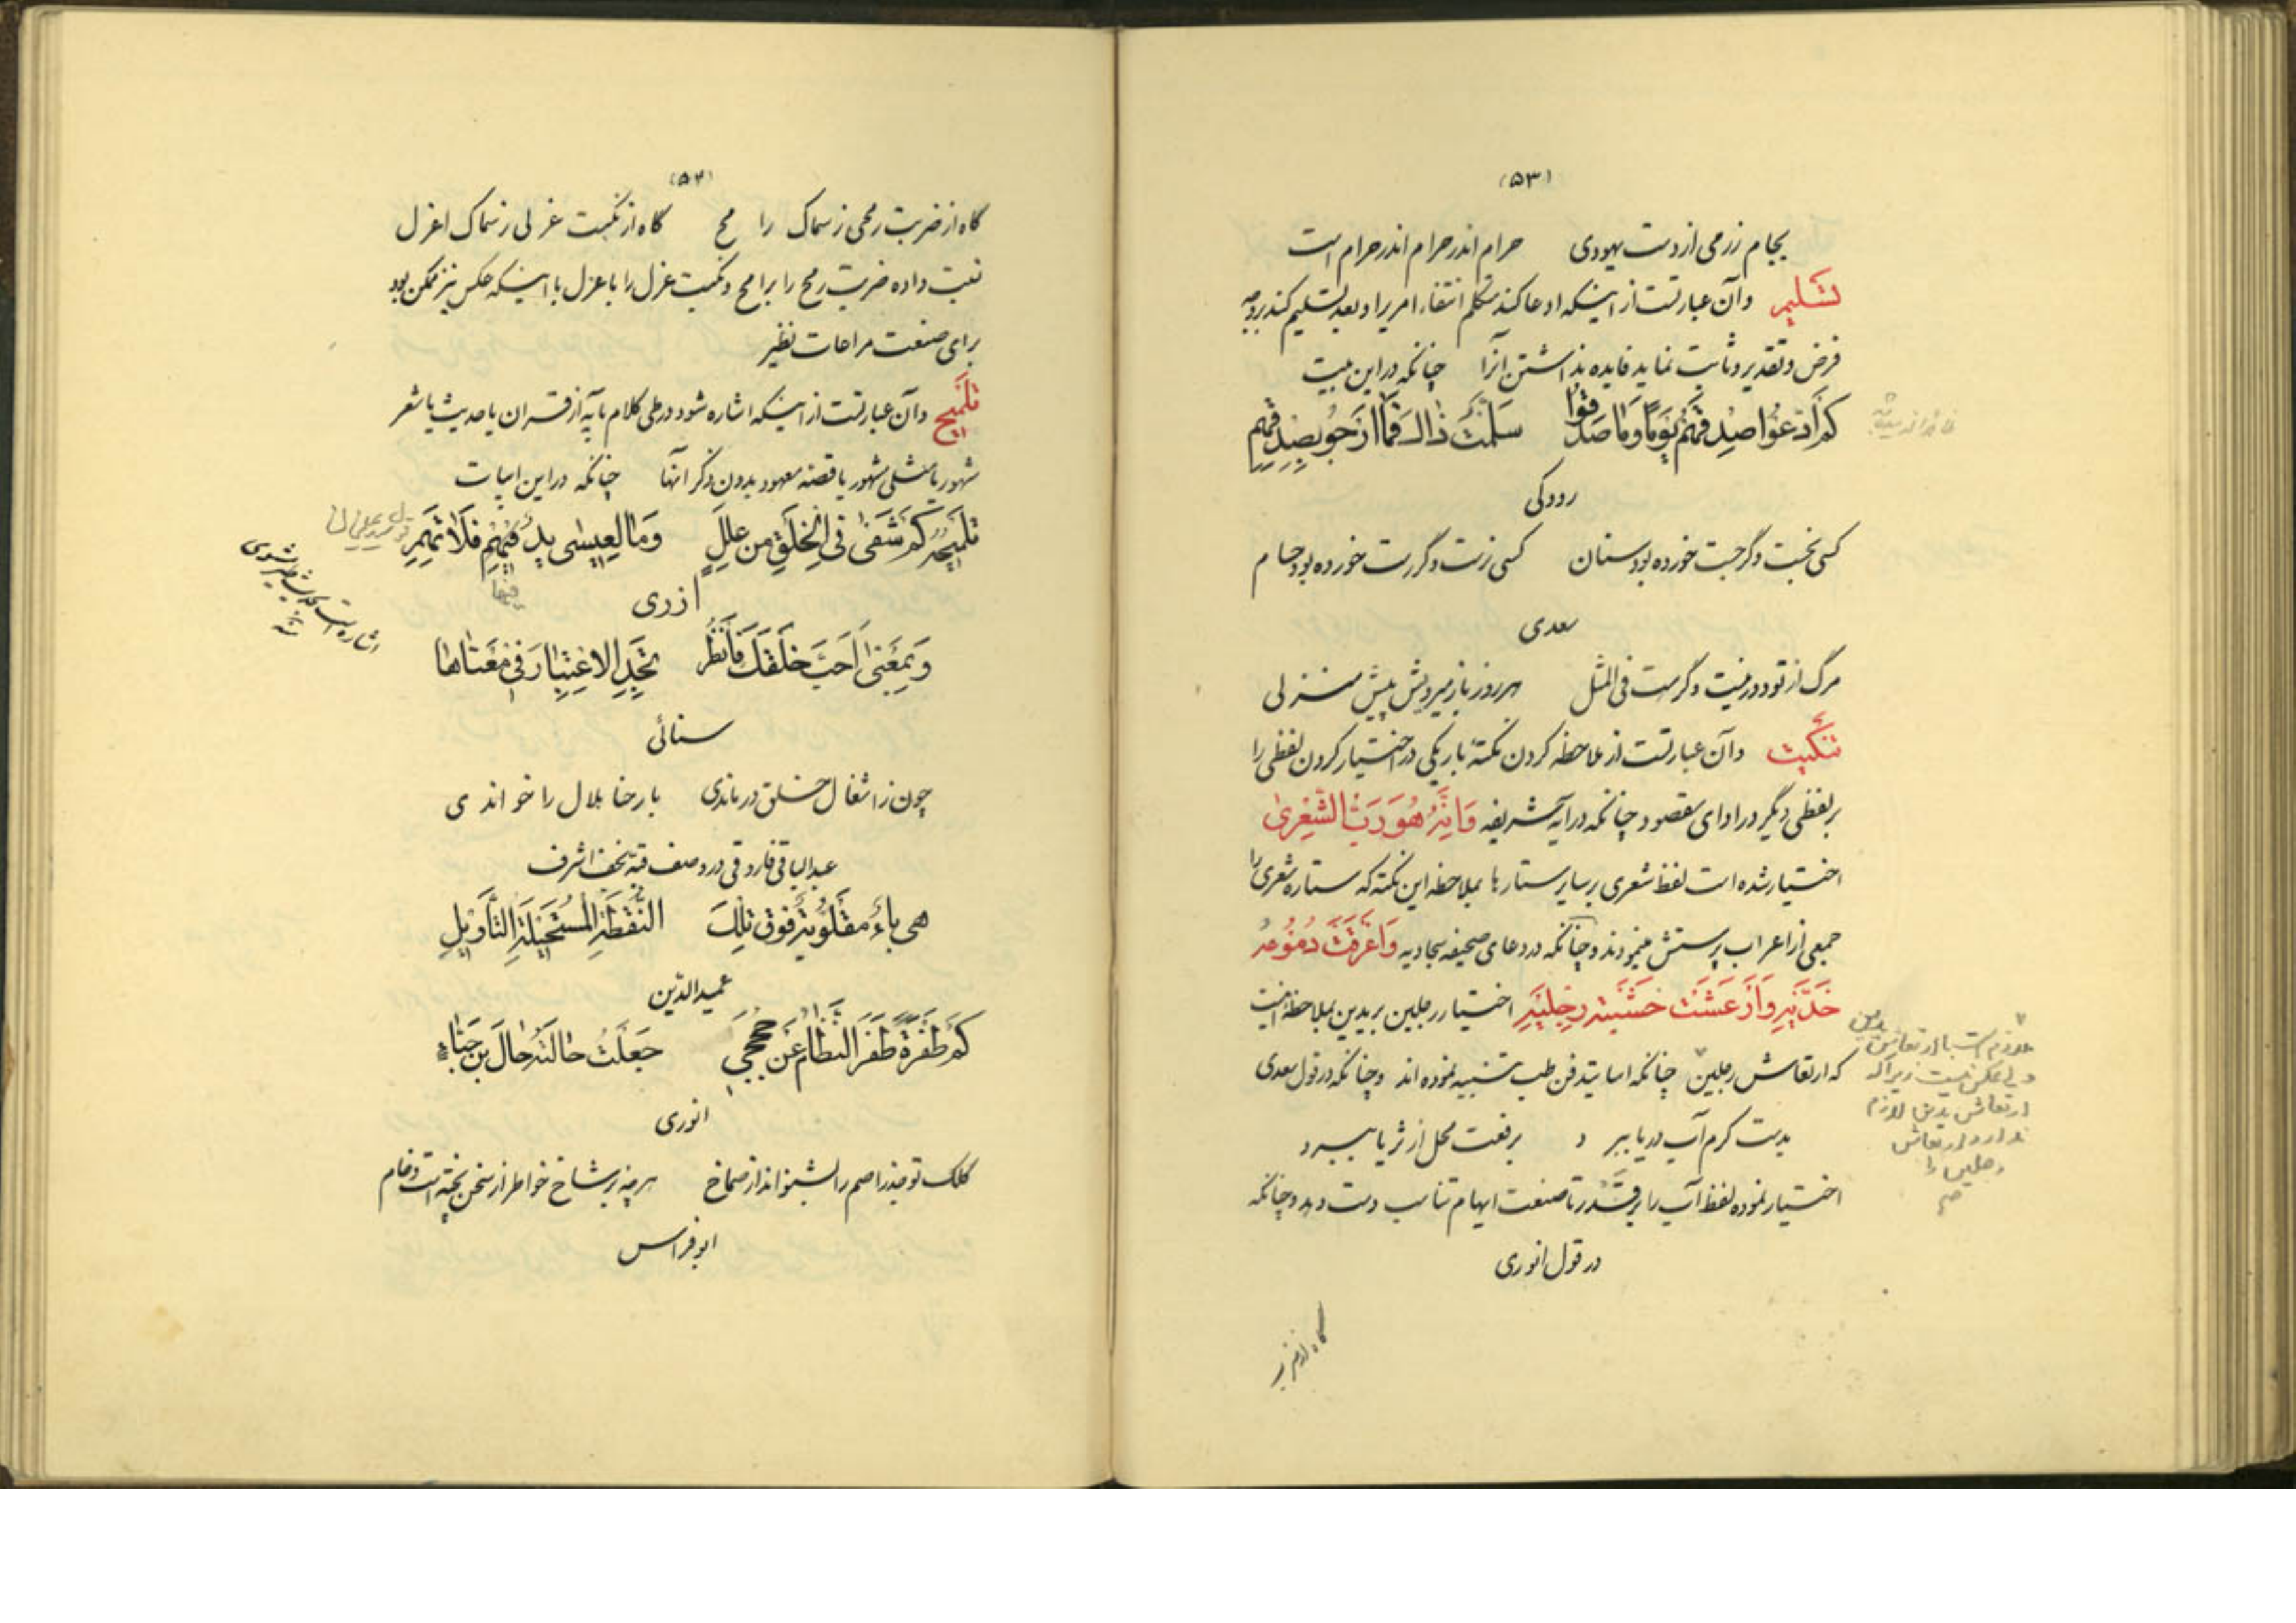 (۵۳)
بجام زر می از دست یهودی حرام اندر حرام اندر حرام است
تسلیم وآن عبارتست از اینکه ادعا کند متکلم انتفاء امریرا و بعد تسلیم کند بروجه
فرض و تقدیر و ثابت نماید فایده نداشتن آنرا چنانکه در این بیت
کم ادعوا صدقهم یوما و ما صدقوا سلمت ذاک فما ارجو بصدقهم
رودکی
کسی نجست و گر جست خورده بود سنان کسی نرست و گر رست خورده بود حسام
سعدی
مرگ از تو دور نیست و گر هست فی المثل هر روز باز میرویش پیش منزلی
تنکیت وآن عبارتست از ملاحظه کردن نکتهٔ باریکی در اختیار کردن لفظی را
بر لفظی دیگر در ادای مقصود چنانکه در آیه شریفه وَاَنَّهُ هُوَ رَبُّ الشِّعْرىٰ
اختیار شده است لفظ شعری بر سایر ستارها بملاحظه این نکته که ستاره شعری را
جمعی از اعراب پرستش مینمودند و چنانکه در دعای صحیفه سجادیه وَاَغْرَقَتْ دُمُوعُهُ
خَدَّیْهِ وَاَرْعَشَتْ خَشْیَتُهُ رِجْلَیْهِ اختیار رجلین بر یدین بملاحظهٔ اینست
که ارتعاش رجلین چنانکه اساتید فن طب تنبیه نموده اند و چنانکه در قول سعدی
ملازم است با ارتعاش یدین
ولی عکس نیست زیرا که
ارتعاش یدین لازم
ندارد ارتعاش
رجلین را
صح
بدست کرم آب دریا ببرد برفعت محل از ثریا ببرد
اختیار نموده لفظ آب را بر قدر تا صنعت ایهام تناسب دست دهد و چنانکه
در قول انوری
گاه از ضربت
(۵۴)
گاه از ضربت رمحی ز سماک رامح گاه از نکبت عزلی ز سماک اعزل
نسبت داده ضربت رمح را برامح و نکبت عزل را باعزل با اینکه عکس نیز ممکن بود
برای صنعت مراعات نظیر
تلمیح وآن عبارتست از اینکه اشاره شود در طی کلام بآیه از قران یا حدیث یا شعر
مشهور یا مثلی مشهور یا قصه معهود بدون ذکر آنها چنانکه در این ابیات
تلمیحه کم شفی فی الخلق من علل وما لعیسی ید فیهم فلا تهم
فیها
ازری
وبمعنی احب خلقک فانظر تجد الاعتبار فی معناها
سنائی
چون ز اشغال خلق درماندی بارحنا بلال را خواندی
عبدالباقی فاروقی در وصف قبه نجف اشرف
هی باء مقلوبة فوق تلک النقطة المستحیلة التاویل
عمیدالدین
کم طفرة طفر النظام عن حججی جعلت حالته حال بن جباء
انوری
کلک تو میدرد اصم را بشنواند از صماخ هرچه بر شاخ خواطر از سخن پخته است و خام
ابو فراس